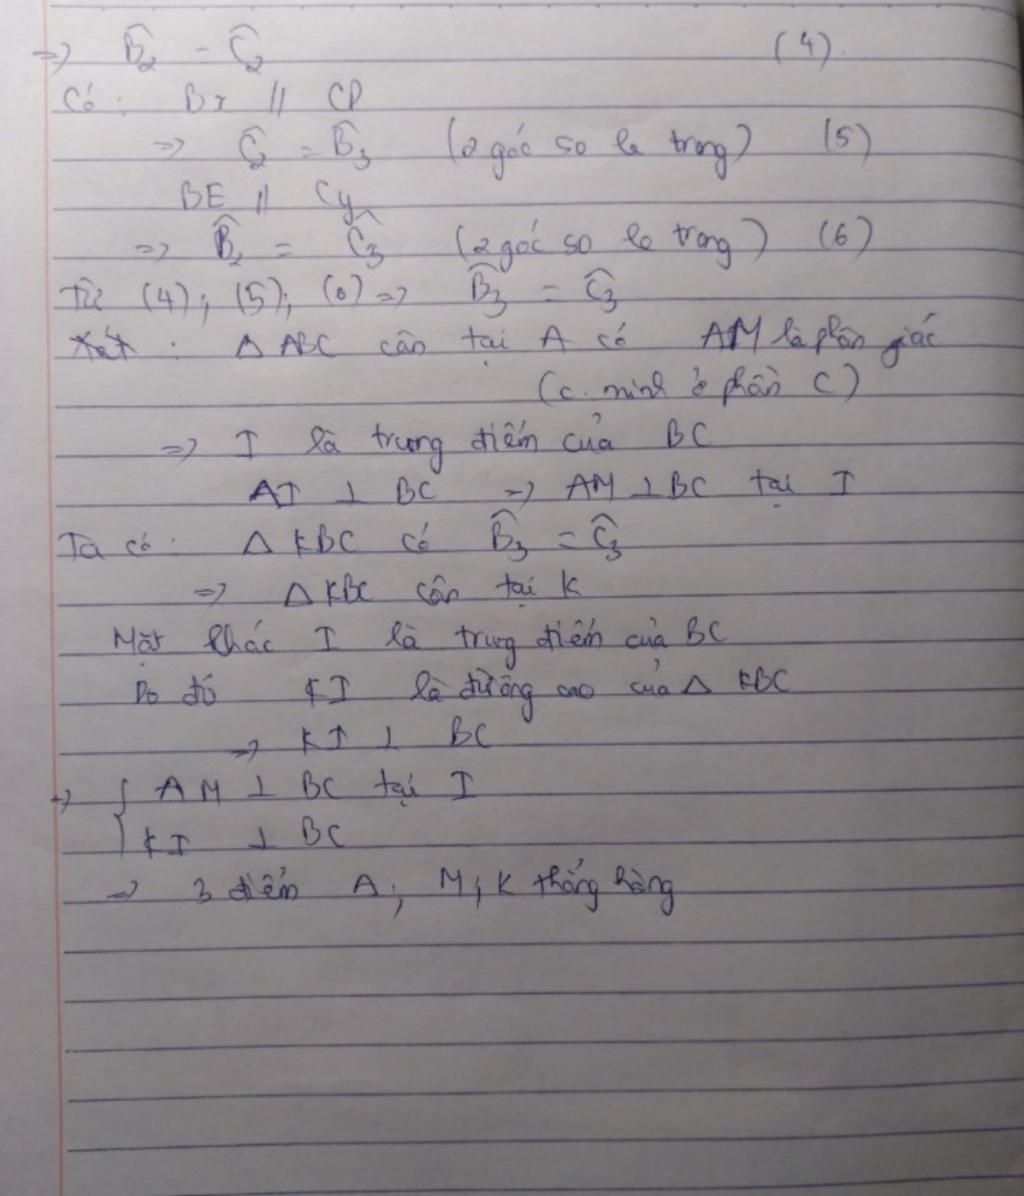 => B̂₂ = Ĉ₂ (4).
Có: Bx // CD
=> Ĉ₂ = B̂₃ (2 góc so le trong) (5)
BE // Cy
=> B̂₂ = Ĉ₃ (2 góc so le trong) (6)
Từ (4); (5); (6) => B̂₃ = Ĉ₃
Xét: Δ ABC cân tại A có AM là phân giác
(c. minh ở phần C)
=> I là trung điểm của BC
AI ⊥ BC => AM ⊥ BC tại I
Ta có: Δ KBC có B̂₃ = Ĉ₃
=> Δ KBC cân tại K
Mặt khác I là trung điểm của BC
Do đó KI là đường cao của Δ KBC
=> KI ⊥ BC
=> { AM ⊥ BC tại I
KI ⊥ BC
=> 3 điểm A; M; K thẳng hàng